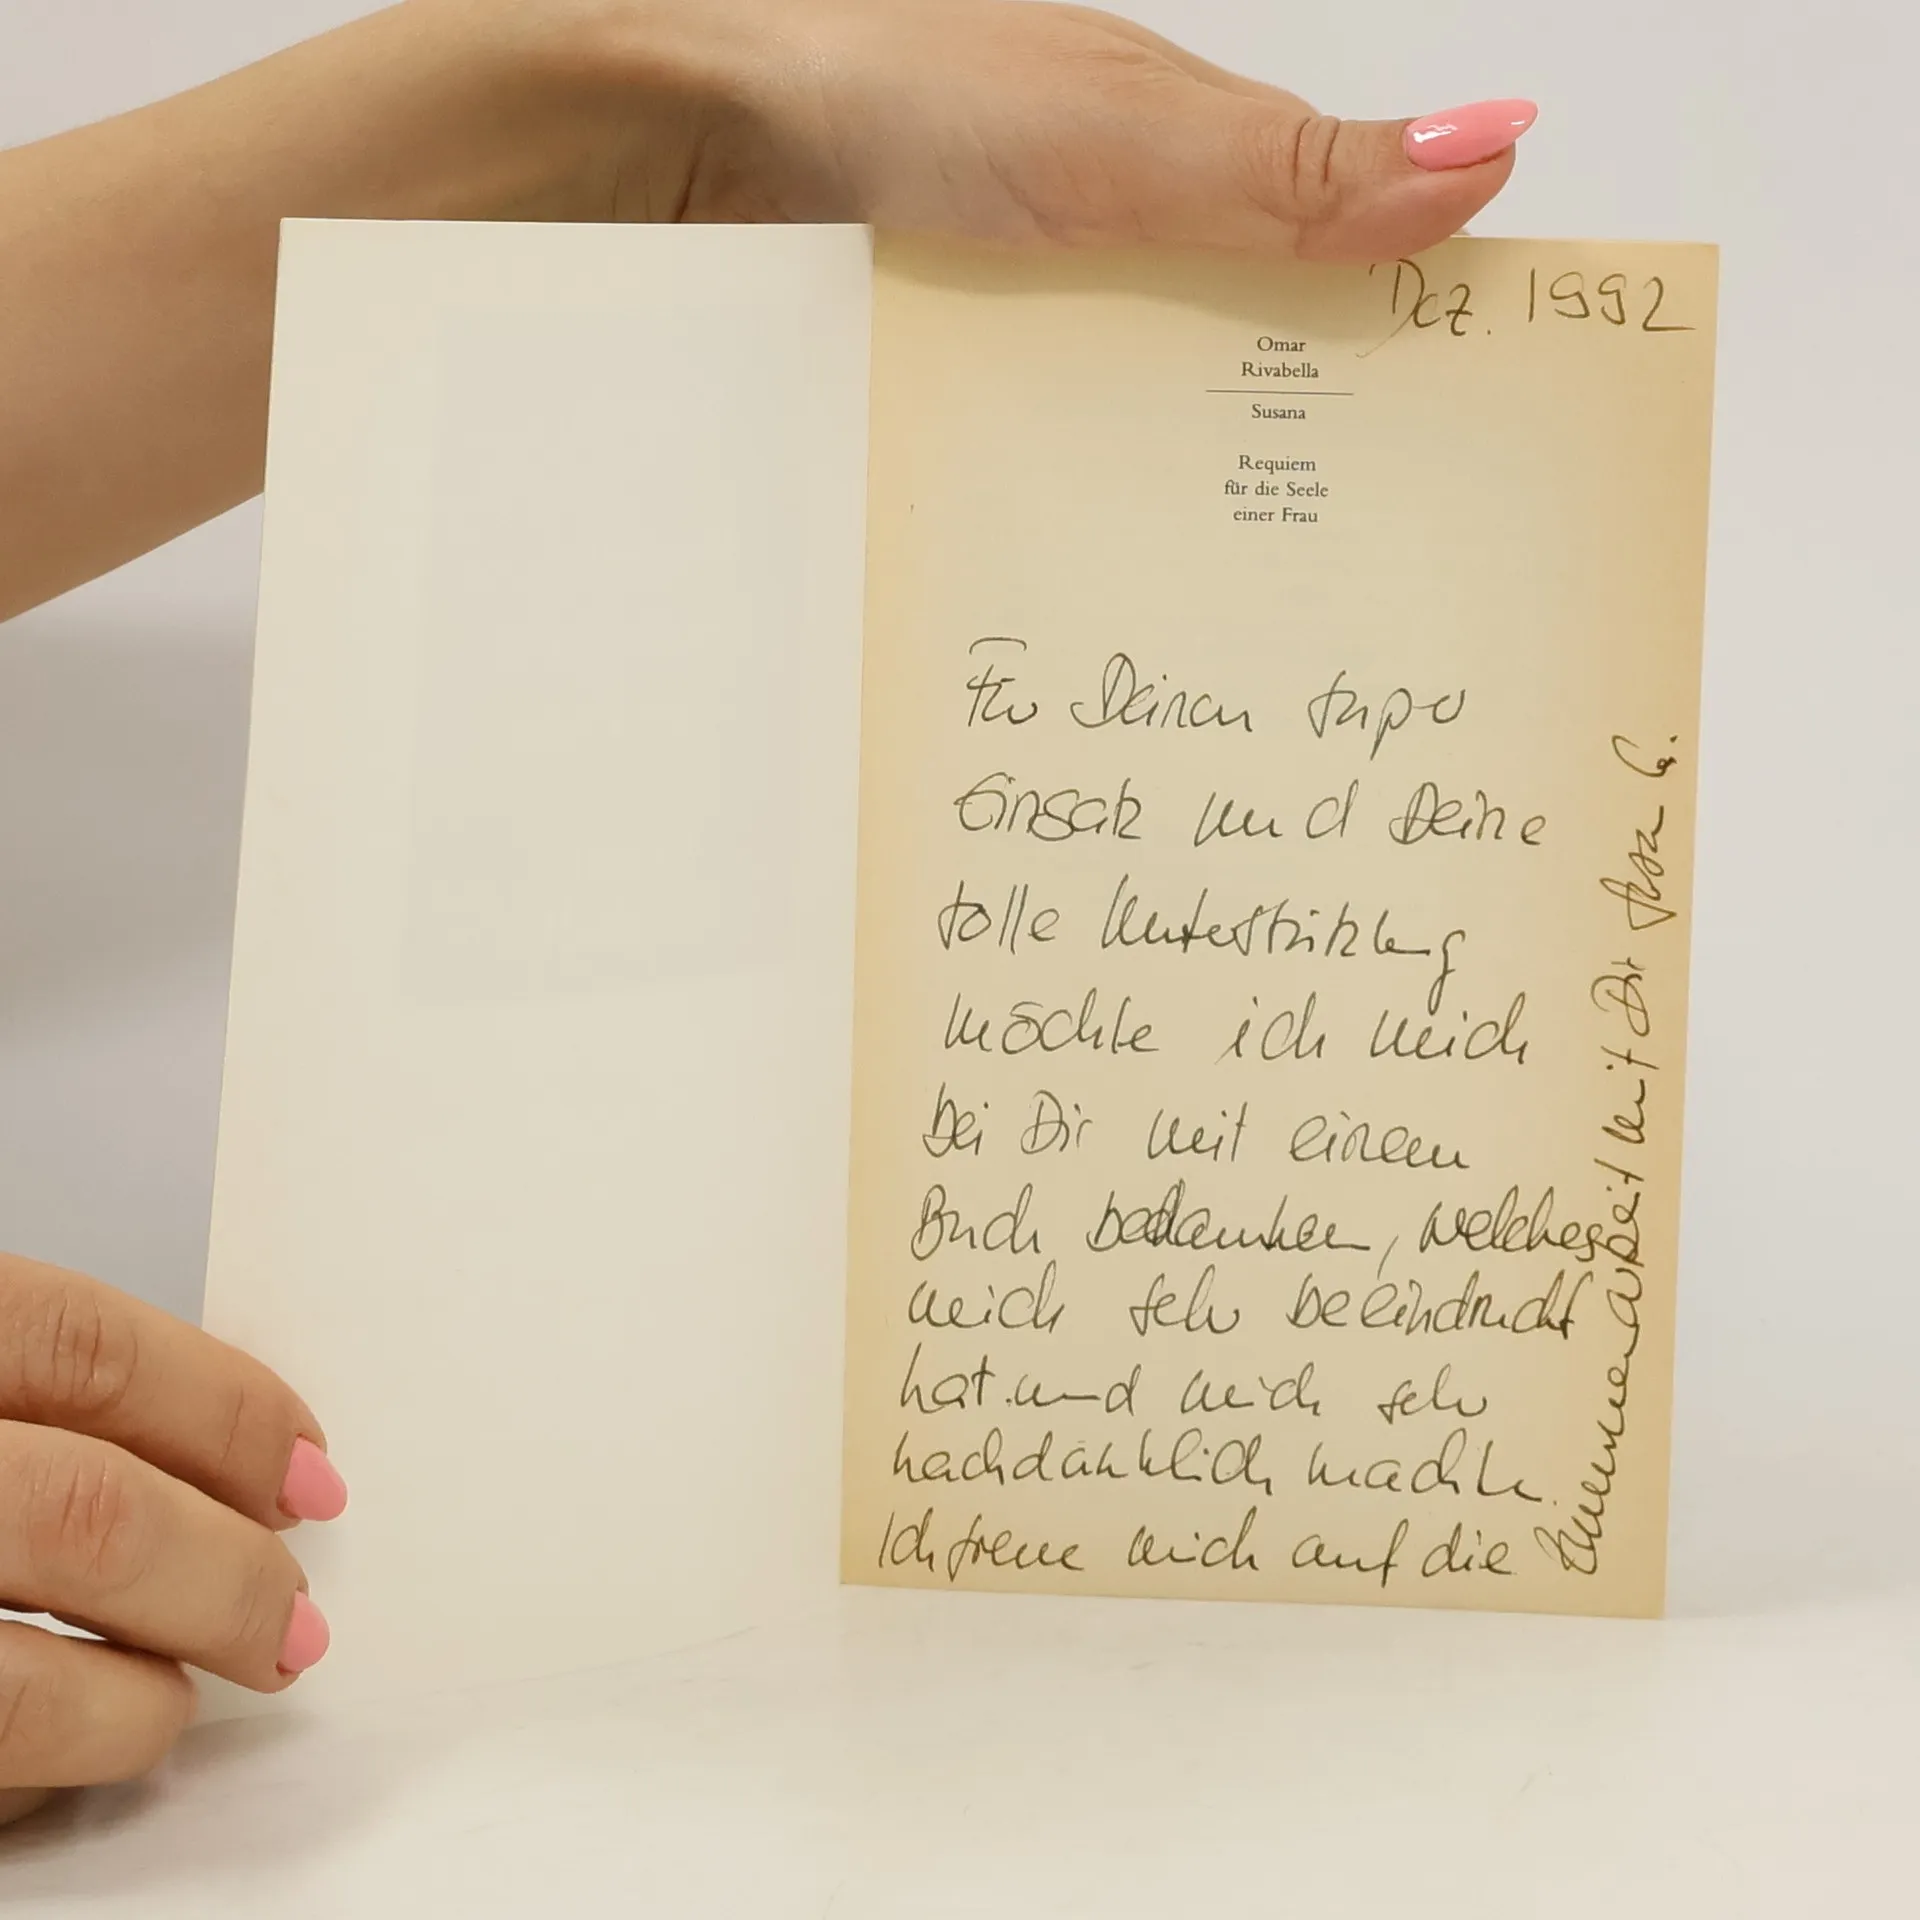 Dez. 1992
Omar
Rivabella
Susana
Requiem
für die Seele
einer Frau
Für Deinen super
Einsatz und Deine
tolle Unterstützung
möchte ich mich
bei Dir mit einem
Buch bedanken, welches
mich sehr beeindruckt
hat und mich sehr
nachdenklich machte.
Ich freue mich auf die
Zusammenarbeit mit Dir